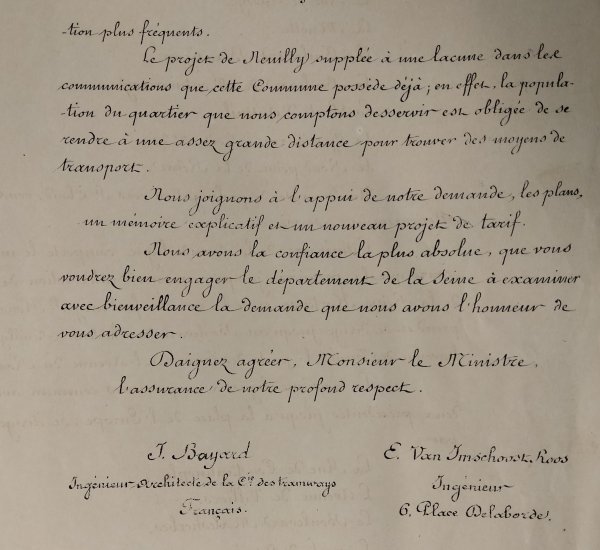 -tion plus fréquents.
Le projet de Neuilly supplée à une lacune dans les
communications que cette Commune possède déjà; en effet, la popula-
-tion du quartier que nous comptons desservir est obligée de se
rendre à une assez grande distance pour trouver des moyens de
transport.
Nous joignons à l'appui de notre demande, les plans,
un mémoire explicatif et un nouveau projet de tarif.
Nous avons la confiance la plus absolue, que vous
voudrez bien engager le département de la Seine à examiner
avec bienveillance la demande que nous avons l'honneur de
vous adresser.
Daignez agréer, Monsieur le Ministre,
l'assurance de notre profond respect.
J. Bayard
E. Van Imschoost Roos
Ingénieur Architecte de la Cie des tramways
Ingénieur
Français.
6. Place Delaborde.